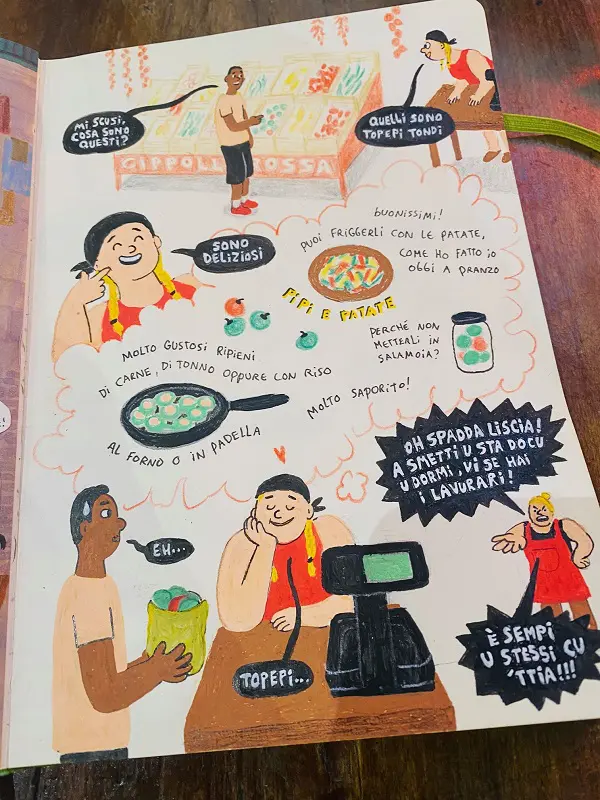 MI SCUSI,
COSA SONO
QUESTI?
QUELLI SONO
TOPEPI TONDI
CIPPOLLA ROSSA
SONO
DELIZIOSI
BUONISSIMI!
PUOI FRIGGERLI CON LE PATATE,
COME HO FATTO IO
OGGI A PRANZO
PIPI E PATATE
PERCHÉ NON
METTERLI IN
SALAMOIA?
MOLTO GUSTOSI RIPIENI
DI CARNE, DI TONNO OPPURE CON RISO
MOLTO SAPORITO!
AL FORNO O IN PADELLA
OH SPADDA LISCIA!
A SMETTI U STA DOCU
U DORMI, VI SE HAI
I LAVURARI!
EH...
TOPEPI...
È SEMPI
U STESSI CU
'TTIA!!!